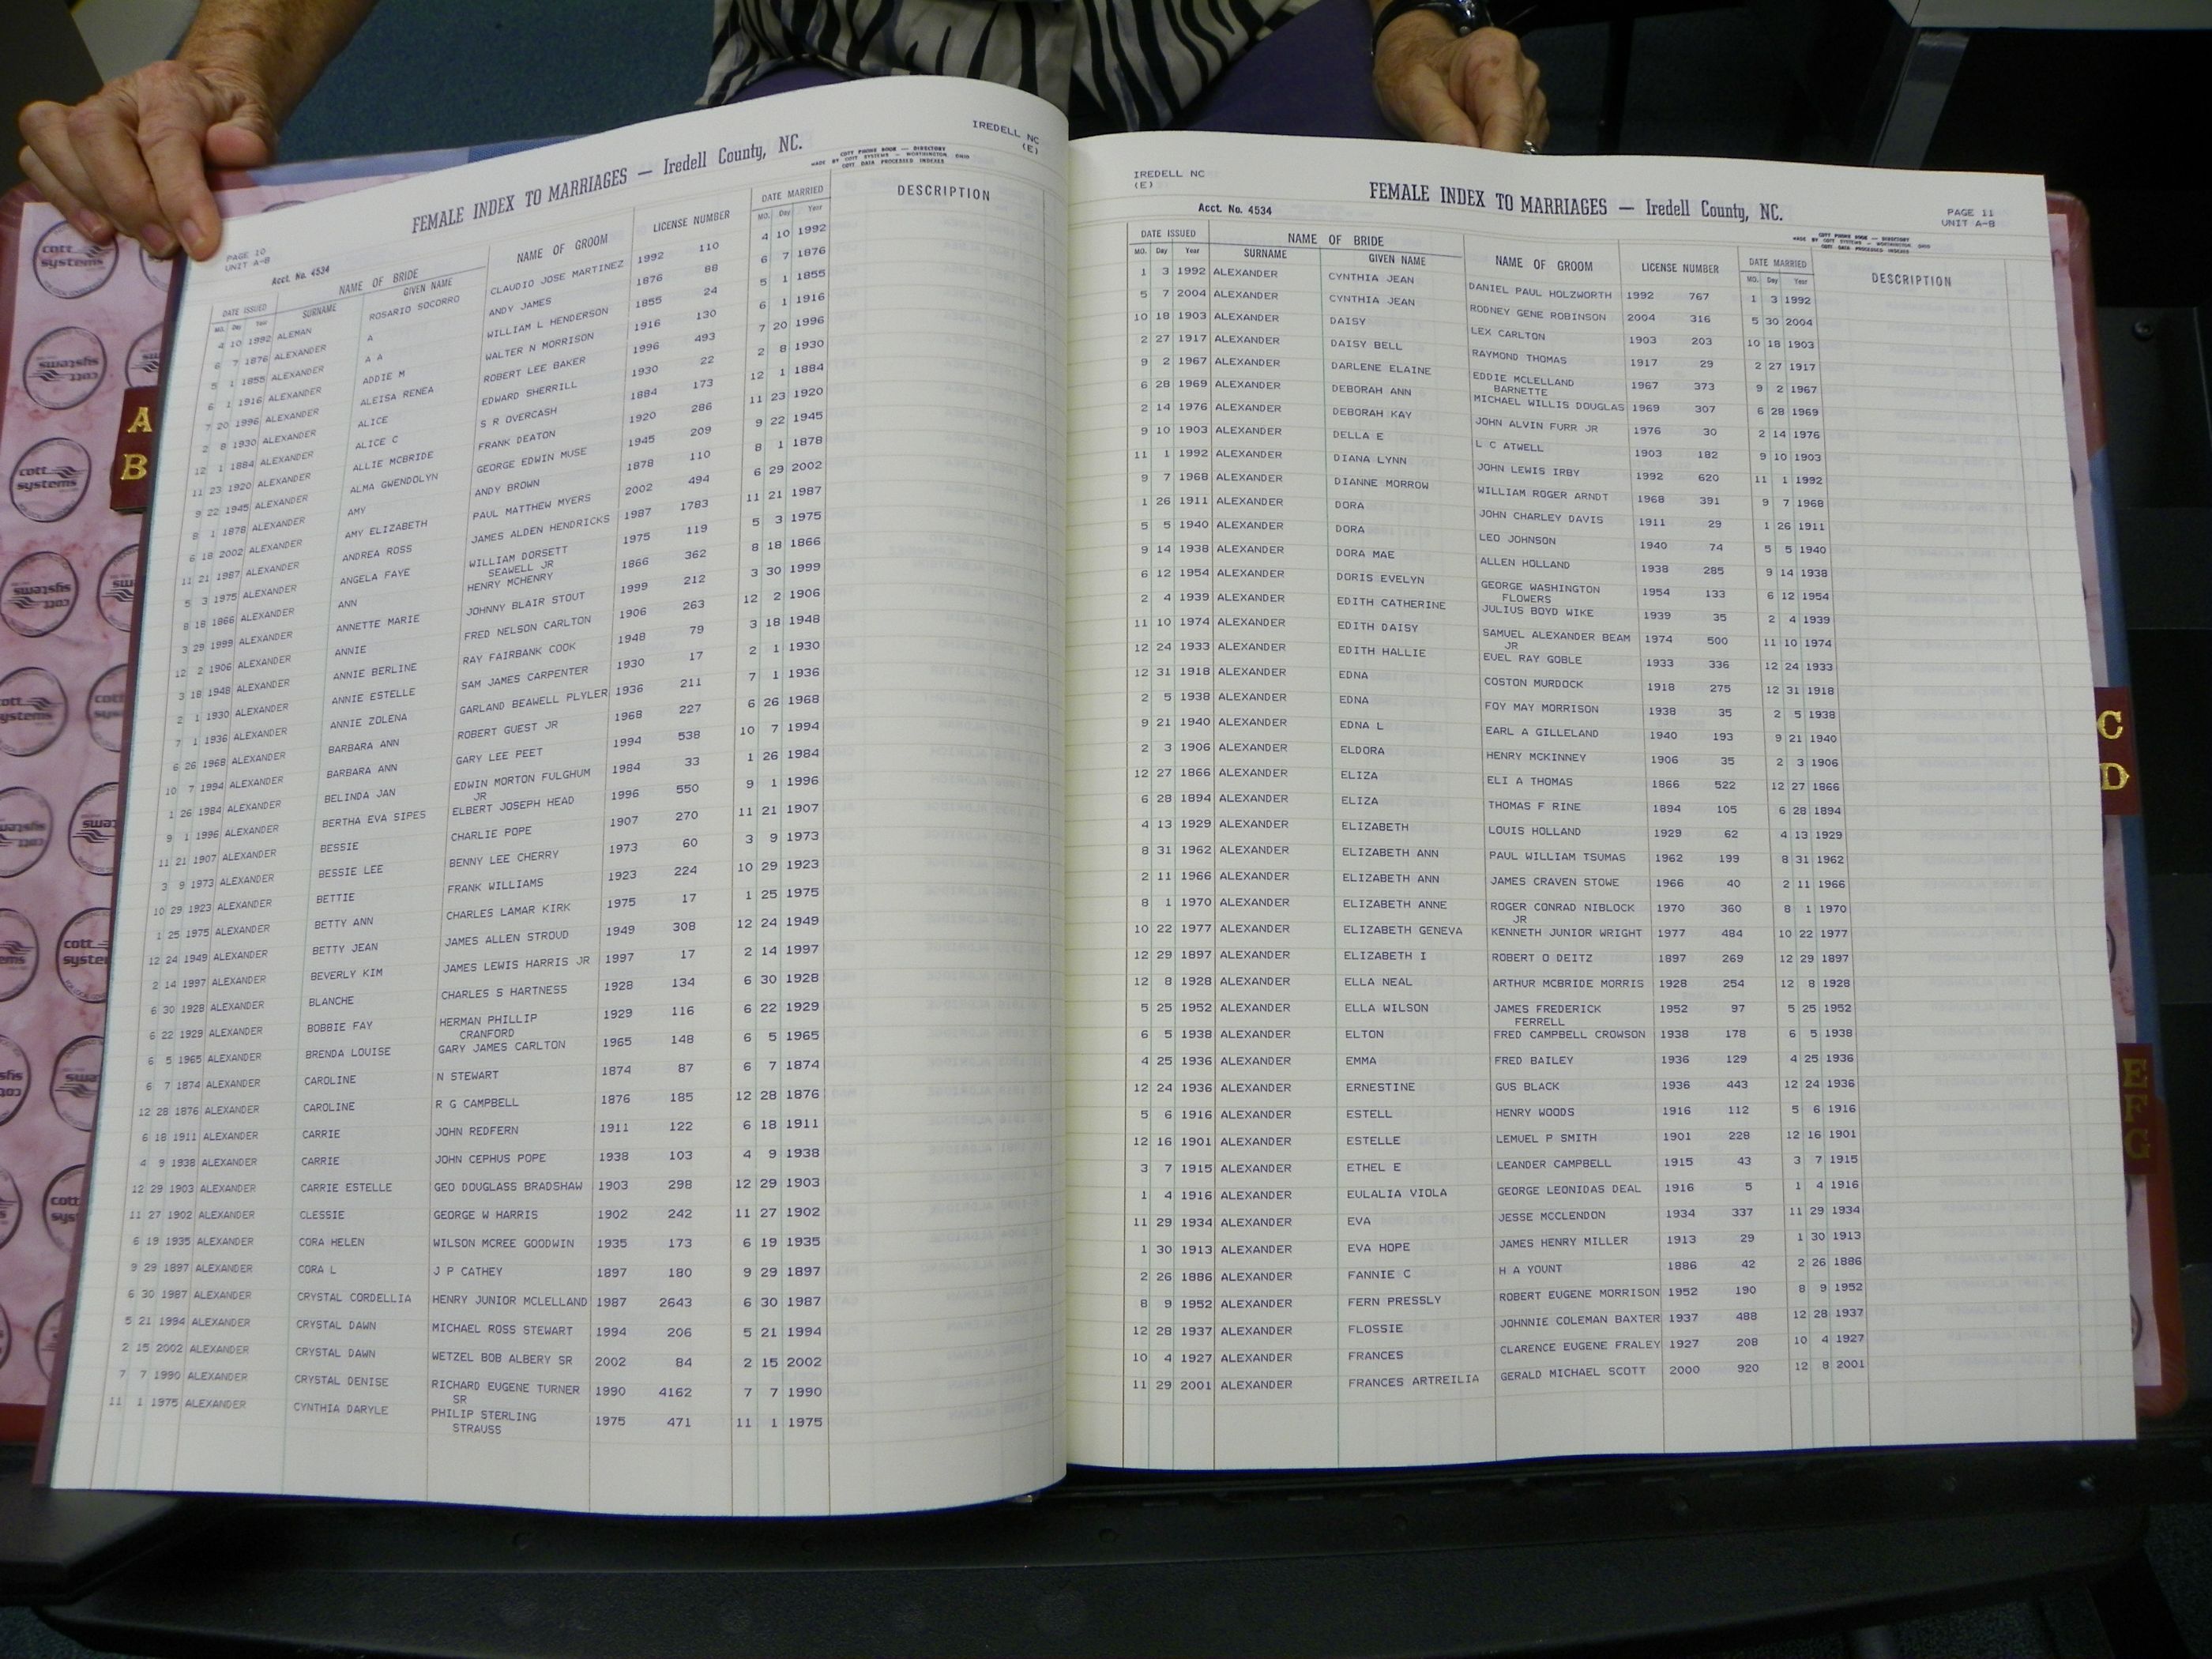 IREDELL NC
(E)
FEMALE INDEX TO MARRIAGES — Iredell County, NC.
COTT PHONE BOOK — DIRECTORY
MADE BY COTT SYSTEMS — WORTHINGTON, OHIO
COTT DATA PROCESSED INDEXES
PAGE 10
UNIT A-B
Acct. No. 4534
DATE ISSUED NAME OF BRIDE NAME OF GROOM LICENSE NUMBER DATE MARRIED DESCRIPTION
MO. Day Year SURNAME GIVEN NAME MO. Day Year
4 10 1992 ALEMAN ROSARIO SOCORRO CLAUDIO JOSE MARTINEZ 1992 110 4 10 1992
6 7 1876 ALEXANDER A ANDY JAMES 1876 88 6 7 1876
5 1 1855 ALEXANDER A A WILLIAM L HENDERSON 1855 24 5 1 1855
6 1 1916 ALEXANDER ADDIE M WALTER N MORRISON 1916 130 6 1 1916
7 20 1996 ALEXANDER ALEISA RENEA ROBERT LEE BAKER 1996 493 7 20 1996
2 8 1930 ALEXANDER ALICE EDWARD SHERRILL 1930 22 2 8 1930
12 1 1884 ALEXANDER ALICE C S R OVERCASH 1884 173 12 1 1884
11 23 1920 ALEXANDER ALLIE MCBRIDE FRANK DEATON 1920 286 11 23 1920
9 22 1945 ALEXANDER ALMA GWENDOLYN GEORGE EDWIN MUSE 1945 209 9 22 1945
8 1 1878 ALEXANDER AMY ANDY BROWN 1878 110 8 1 1878
6 18 2002 ALEXANDER AMY ELIZABETH PAUL MATTHEW MYERS 2002 494 6 29 2002
11 21 1987 ALEXANDER ANDREA ROSS JAMES ALDEN HENDRICKS 1987 1783 11 21 1987
5 3 1975 ALEXANDER ANGELA FAYE WILLIAM DORSETT 1975 119 5 3 1975
SEAWELL JR
8 18 1866 ALEXANDER ANN HENRY MCHENRY 1866 362 8 18 1866
3 29 1999 ALEXANDER ANNETTE MARIE JOHNNY BLAIR STOUT 1999 212 3 30 1999
12 2 1906 ALEXANDER ANNIE FRED NELSON CARLTON 1906 263 12 2 1906
3 18 1948 ALEXANDER ANNIE BERLINE RAY FAIRBANK COOK 1948 79 3 18 1948
2 1 1930 ALEXANDER ANNIE ESTELLE SAM JAMES CARPENTER 1930 17 2 1 1930
7 1 1936 ALEXANDER ANNIE ZOLENA GARLAND BEAWELL PLYLER 1936 211 7 1 1936
6 26 1968 ALEXANDER BARBARA ANN ROBERT GUEST JR 1968 227 6 26 1968
10 7 1994 ALEXANDER BARBARA ANN GARY LEE PEET 1994 538 10 7 1994
1 26 1984 ALEXANDER BELINDA JAN EDWIN MORTON FULGHUM 1984 33 1 26 1984
JR
9 1 1996 ALEXANDER BERTHA EVA SIPES ELBERT JOSEPH HEAD 1996 550 9 1 1996
11 21 1907 ALEXANDER BESSIE CHARLIE POPE 1907 270 11 21 1907
3 9 1973 ALEXANDER BESSIE LEE BENNY LEE CHERRY 1973 60 3 9 1973
10 29 1923 ALEXANDER BETTIE FRANK WILLIAMS 1923 224 10 29 1923
1 25 1975 ALEXANDER BETTY ANN CHARLES LAMAR KIRK 1975 17 1 25 1975
12 24 1949 ALEXANDER BETTY JEAN JAMES ALLEN STROUD 1949 308 12 24 1949
2 14 1997 ALEXANDER BEVERLY KIM JAMES LEWIS HARRIS JR 1997 17 2 14 1997
6 30 1928 ALEXANDER BLANCHE CHARLES S HARTNESS 1928 134 6 30 1928
6 22 1929 ALEXANDER BOBBIE FAY HERMAN PHILLIP 1929 116 6 22 1929
CRANFORD
6 5 1965 ALEXANDER BRENDA LOUISE GARY JAMES CARLTON 1965 148 6 5 1965
6 7 1874 ALEXANDER CAROLINE N STEWART 1874 87 6 7 1874
12 28 1876 ALEXANDER CAROLINE R G CAMPBELL 1876 185 12 28 1876
6 18 1911 ALEXANDER CARRIE JOHN REDFERN 1911 122 6 18 1911
4 9 1938 ALEXANDER CARRIE JOHN CEPHUS POPE 1938 103 4 9 1938
12 29 1903 ALEXANDER CARRIE ESTELLE GEO DOUGLASS BRADSHAW 1903 298 12 29 1903
11 27 1902 ALEXANDER CLESSIE GEORGE W HARRIS 1902 242 11 27 1902
6 19 1935 ALEXANDER CORA HELEN WILSON MCREE GOODWIN 1935 173 6 19 1935
9 29 1897 ALEXANDER CORA L J P CATHEY 1897 180 9 29 1897
6 30 1987 ALEXANDER CRYSTAL CORDELLIA HENRY JUNIOR MCLELLAND 1987 2643 6 30 1987
5 21 1994 ALEXANDER CRYSTAL DAWN MICHAEL ROSS STEWART 1994 206 5 21 1994
2 15 2002 ALEXANDER CRYSTAL DAWN WETZEL BOB ALBERY SR 2002 84 2 15 2002
7 7 1990 ALEXANDER CRYSTAL DENISE RICHARD EUGENE TURNER 1990 4162 7 7 1990
SR
11 1 1975 ALEXANDER CYNTHIA DARYLE PHILIP STERLING 1975 471 11 1 1975
STRAUSS
IREDELL NC
(E)
FEMALE INDEX TO MARRIAGES — Iredell County, NC.
PAGE 11
UNIT A-B
Acct. No. 4534
COTT PHONE BOOK — DIRECTORY
MADE BY COTT SYSTEMS — WORTHINGTON, OHIO
COTT DATA PROCESSED INDEXES
DATE ISSUED NAME OF BRIDE NAME OF GROOM LICENSE NUMBER DATE MARRIED DESCRIPTION
MO. Day Year SURNAME GIVEN NAME MO. Day Year
1 3 1992 ALEXANDER CYNTHIA JEAN DANIEL PAUL HOLZWORTH 1992 767 1 3 1992
5 7 2004 ALEXANDER CYNTHIA JEAN RODNEY GENE ROBINSON 2004 316 5 30 2004
10 18 1903 ALEXANDER DAISY LEX CARLTON 1903 203 10 18 1903
2 27 1917 ALEXANDER DAISY BELL RAYMOND THOMAS 1917 29 2 27 1917
9 2 1967 ALEXANDER DARLENE ELAINE EDDIE MCLELLAND 1967 373 9 2 1967
BARNETTE
6 28 1969 ALEXANDER DEBORAH ANN MICHAEL WILLIS DOUGLAS 1969 307 6 28 1969
2 14 1976 ALEXANDER DEBORAH KAY JOHN ALVIN FURR JR 1976 30 2 14 1976
9 10 1903 ALEXANDER DELLA E L C ATWELL 1903 182 9 10 1903
11 1 1992 ALEXANDER DIANA LYNN JOHN LEWIS IRBY 1992 620 11 1 1992
9 7 1968 ALEXANDER DIANNE MORROW WILLIAM ROGER ARNDT 1968 391 9 7 1968
1 26 1911 ALEXANDER DORA JOHN CHARLEY DAVIS 1911 29 1 26 1911
5 5 1940 ALEXANDER DORA LEO JOHNSON 1940 74 5 5 1940
9 14 1938 ALEXANDER DORA MAE ALLEN HOLLAND 1938 285 9 14 1938
6 12 1954 ALEXANDER DORIS EVELYN GEORGE WASHINGTON 1954 133 6 12 1954
FLOWERS
2 4 1939 ALEXANDER EDITH CATHERINE JULIUS BOYD WIKE 1939 35 2 4 1939
11 10 1974 ALEXANDER EDITH DAISY SAMUEL ALEXANDER BEAM 1974 500 11 10 1974
JR
12 24 1933 ALEXANDER EDITH HALLIE EUEL RAY GOBLE 1933 336 12 24 1933
12 31 1918 ALEXANDER EDNA COSTON MURDOCK 1918 275 12 31 1918
2 5 1938 ALEXANDER EDNA FOY MAY MORRISON 1938 35 2 5 1938
9 21 1940 ALEXANDER EDNA L EARL A GILLELAND 1940 193 9 21 1940
2 3 1906 ALEXANDER ELDORA HENRY MCKINNEY 1906 35 2 3 1906
12 27 1866 ALEXANDER ELIZA ELI A THOMAS 1866 522 12 27 1866
6 28 1894 ALEXANDER ELIZA THOMAS F RINE 1894 105 6 28 1894
4 13 1929 ALEXANDER ELIZABETH LOUIS HOLLAND 1929 62 4 13 1929
8 31 1962 ALEXANDER ELIZABETH ANN PAUL WILLIAM TSUMAS 1962 199 8 31 1962
2 11 1966 ALEXANDER ELIZABETH ANN JAMES CRAVEN STOWE 1966 40 2 11 1966
8 1 1970 ALEXANDER ELIZABETH ANNE ROGER CONRAD NIBLOCK 1970 360 8 1 1970
JR
10 22 1977 ALEXANDER ELIZABETH GENEVA KENNETH JUNIOR WRIGHT 1977 484 10 22 1977
12 29 1897 ALEXANDER ELIZABETH I ROBERT O DEITZ 1897 269 12 29 1897
12 8 1928 ALEXANDER ELLA NEAL ARTHUR MCBRIDE MORRIS 1928 254 12 8 1928
5 25 1952 ALEXANDER ELLA WILSON JAMES FREDERICK 1952 97 5 25 1952
FERRELL
6 5 1938 ALEXANDER ELTON FRED CAMPBELL CROWSON 1938 178 6 5 1938
4 25 1936 ALEXANDER EMMA FRED BAILEY 1936 129 4 25 1936
12 24 1936 ALEXANDER ERNESTINE GUS BLACK 1936 443 12 24 1936
5 6 1916 ALEXANDER ESTELL HENRY WOODS 1916 112 5 6 1916
12 16 1901 ALEXANDER ESTELLE LEMUEL P SMITH 1901 228 12 16 1901
3 7 1915 ALEXANDER ETHEL E LEANDER CAMPBELL 1915 43 3 7 1915
1 4 1916 ALEXANDER EULALIA VIOLA GEORGE LEONIDAS DEAL 1916 5 1 4 1916
11 29 1934 ALEXANDER EVA JESSE MCCLENDON 1934 337 11 29 1934
1 30 1913 ALEXANDER EVA HOPE JAMES HENRY MILLER 1913 29 1 30 1913
2 26 1886 ALEXANDER FANNIE C H A YOUNT 1886 42 2 26 1886
8 9 1952 ALEXANDER FERN PRESSLY ROBERT EUGENE MORRISON 1952 190 8 9 1952
12 28 1937 ALEXANDER FLOSSIE JOHNNIE COLEMAN BAXTER 1937 488 12 28 1937
10 4 1927 ALEXANDER FRANCES CLARENCE EUGENE FRALEY 1927 208 10 4 1927
11 29 2001 ALEXANDER FRANCES ARTREILIA GERALD MICHAEL SCOTT 2000 920 12 8 2001
A
B
C
D
E
F
G
cott
systems